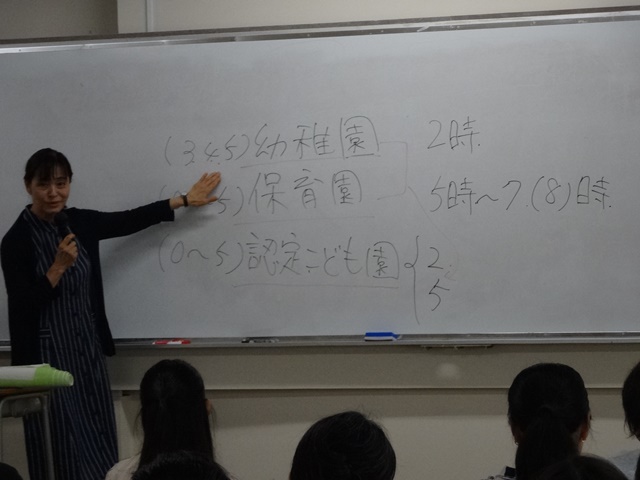 (3,4,5)幼稚園 2時
5)保育園 5時～7.(8)時
(0～5)認定こども園{2
5